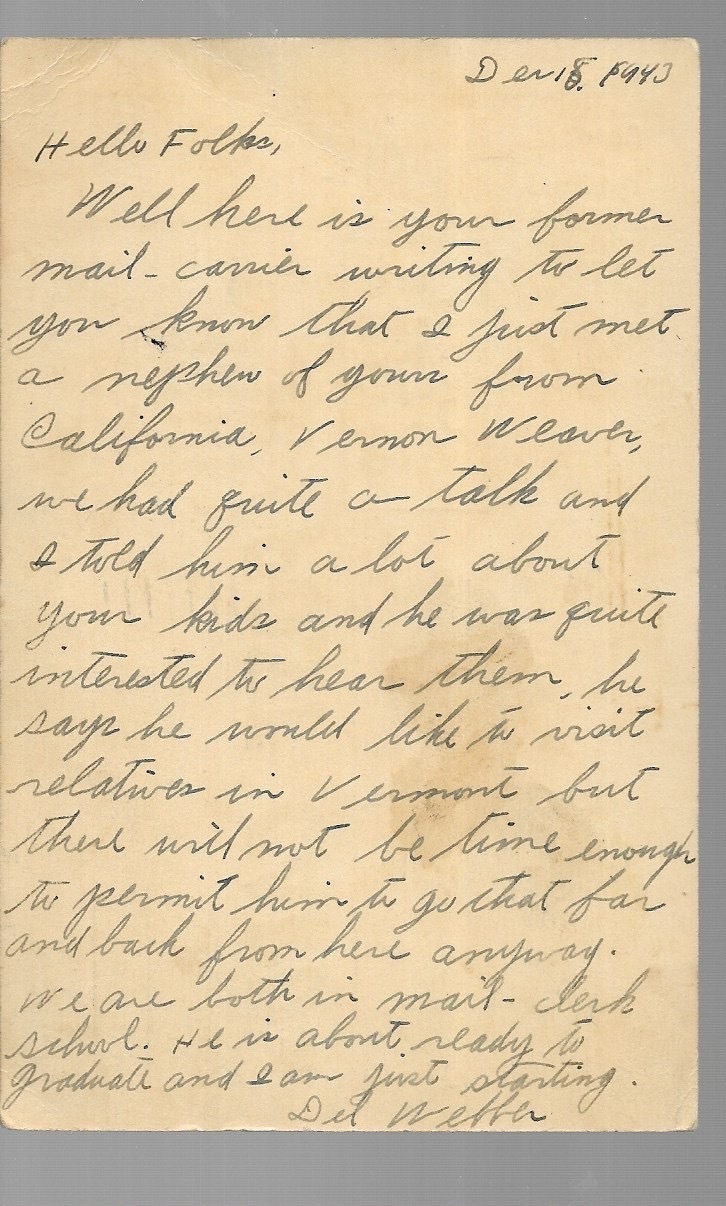 Dec 18, 1943
Hello Folks,
Well here is your former
mail-carrier writing to let
you know that I just met
a nephew of yours from
California, Vernon Weaver,
we had quite a talk and
I told him a lot about
your kids and he was quite
interested to hear them, he
says he would like to visit
relatives in Vermont but
there will not be time enough
to permit him to go that far
and back from here anyway.
We are both in mail-clerk
school. He is about ready to
graduate and I am just starting.
Del Webber